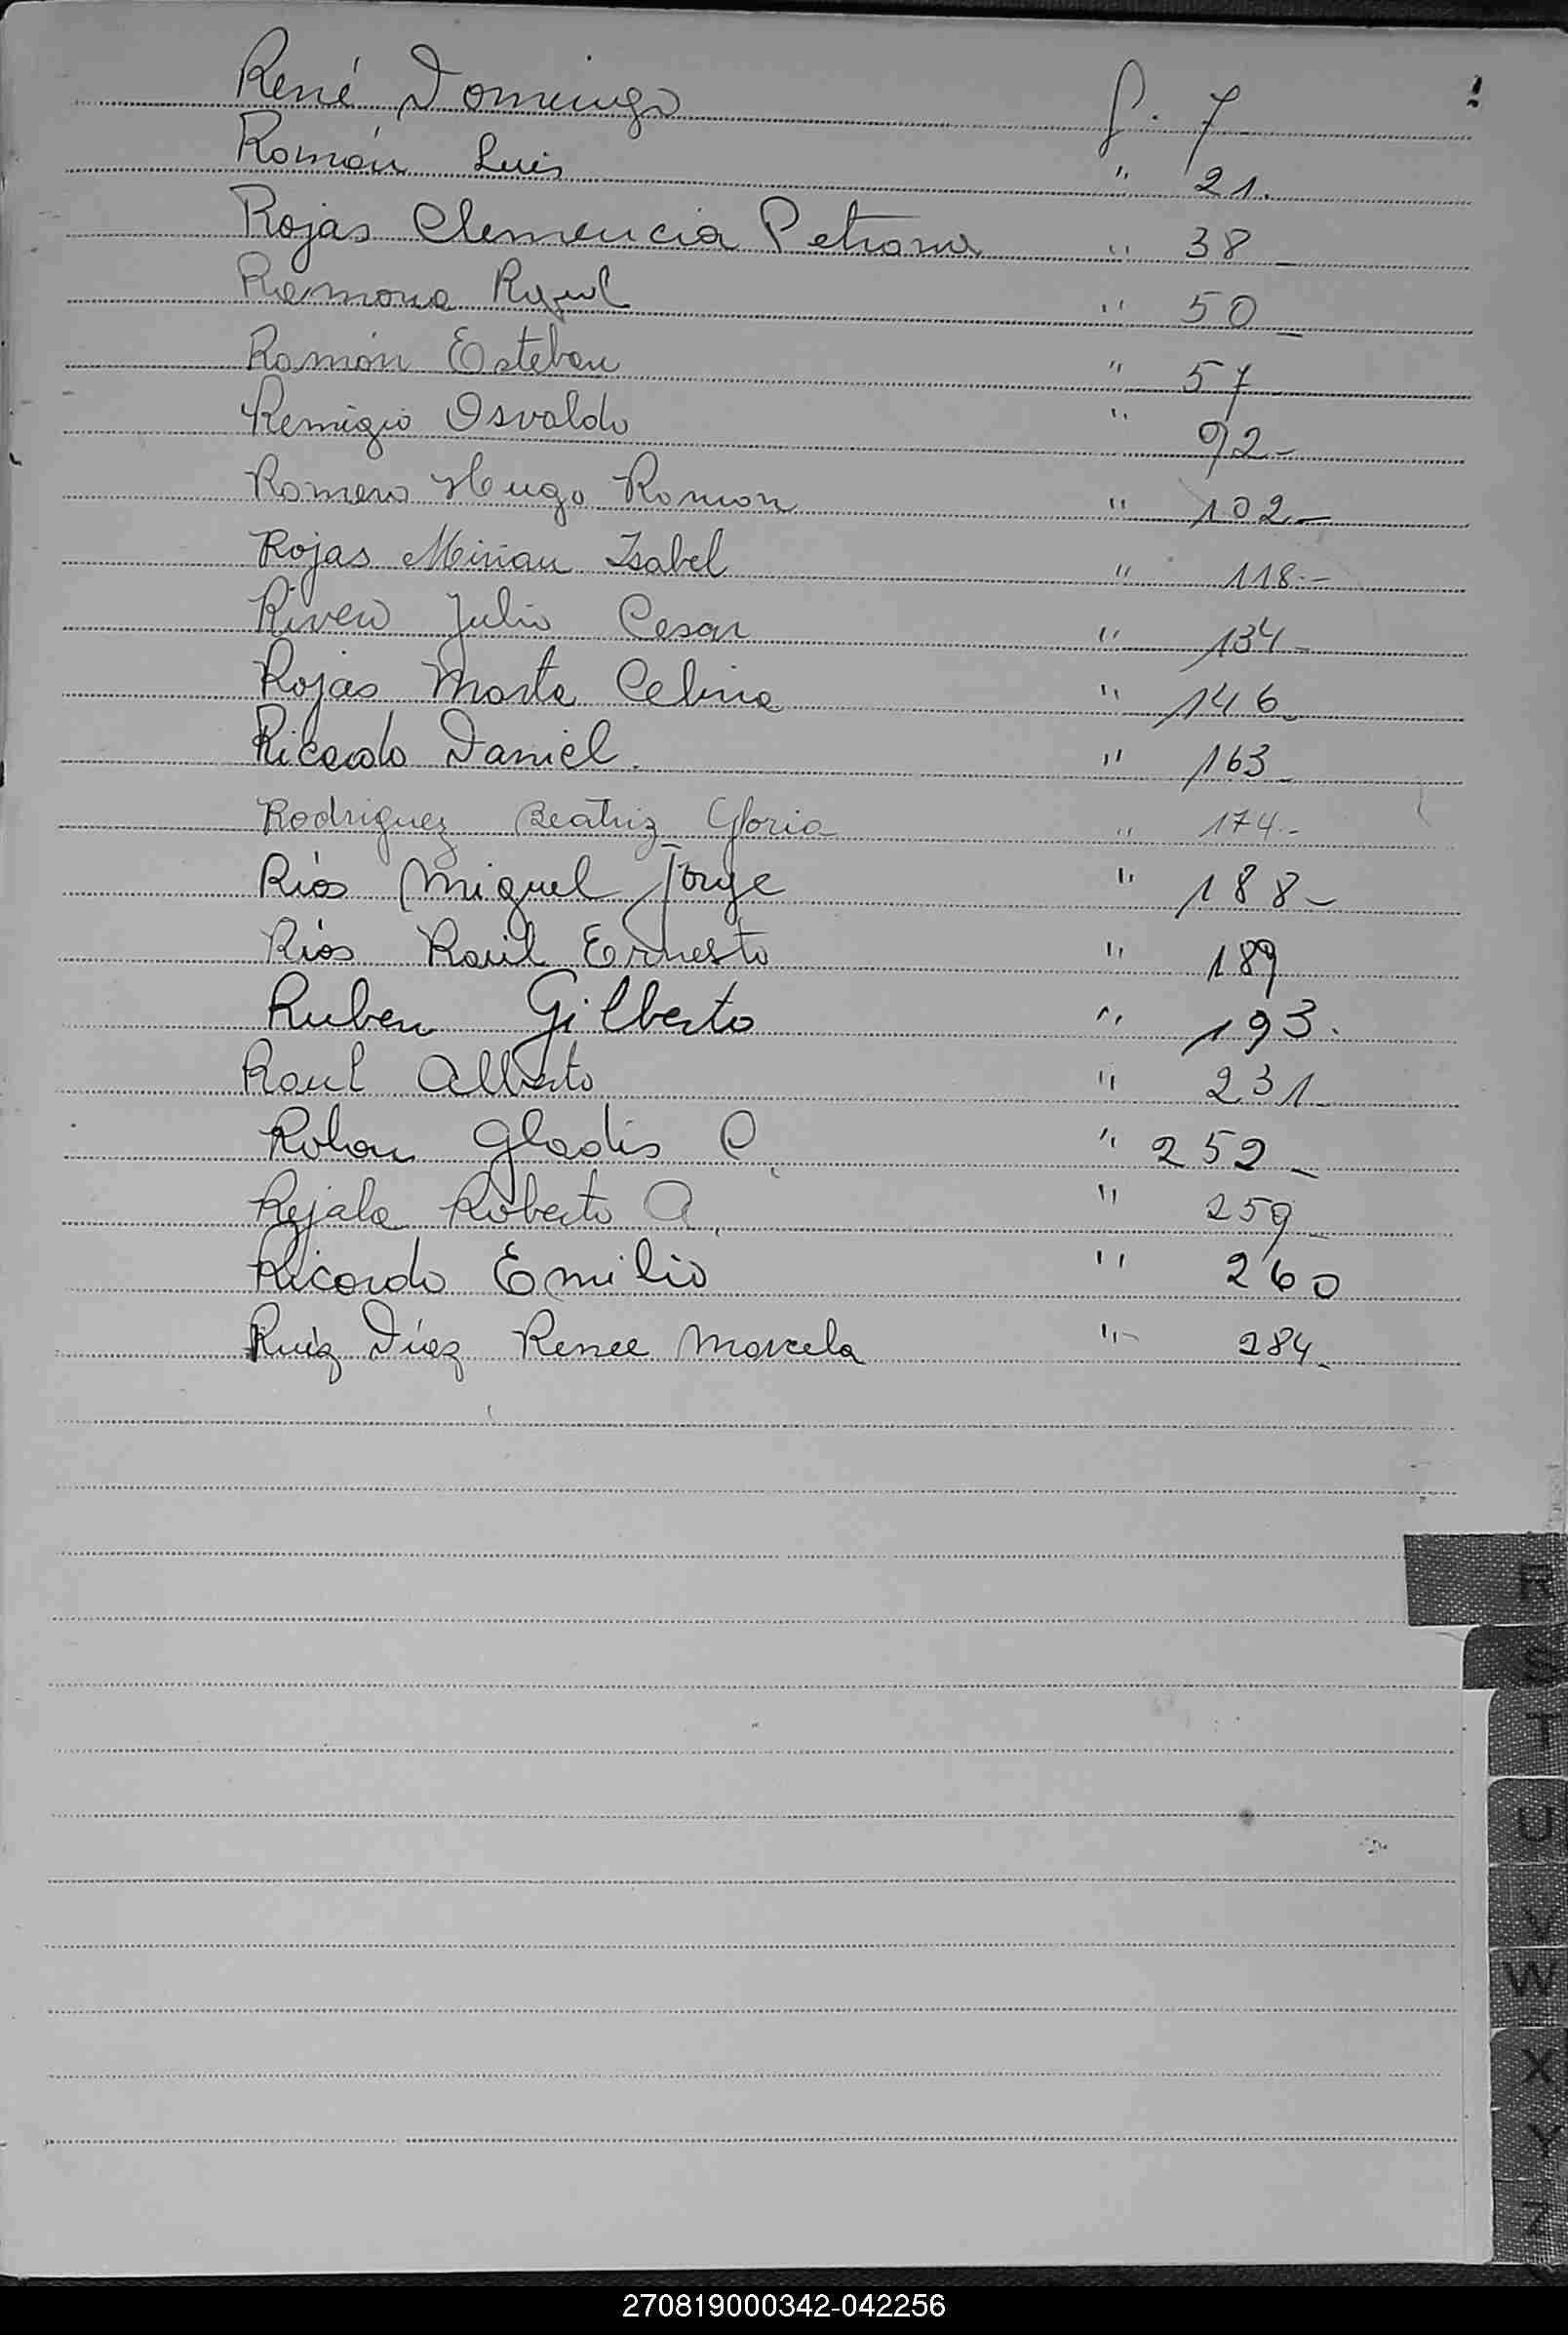 René Domingo f. 7
Román Luis " 21.
Rojas Clemencia Petrona " 38
Ramona Raquel " 50
Ramón Esteban " 57
Remigio Osvaldo " 92-
Romero Hugo Ramon " 102-
Rojas Mirian Isabel " 118.-
Rivero Julio Cesar " 134-
Rojas Marta Celina " 146-
Ricardo Daniel. " 163-
Rodriguez Beatriz Gloria " 174.-
Ríos Miguel Jorge " 188-
Ríos Raúl Ernesto " 189
Ruben Gilberto " 193.
Raul Alberto " 231-
Gladis C. " 252-
Rejala Roberto A. " 259-
Ricardo Emilio " 260
Ruiz Díaz Renee Marcela " 284-
R
S
T
U
V
W
X
Y
Z
270819000342-042256